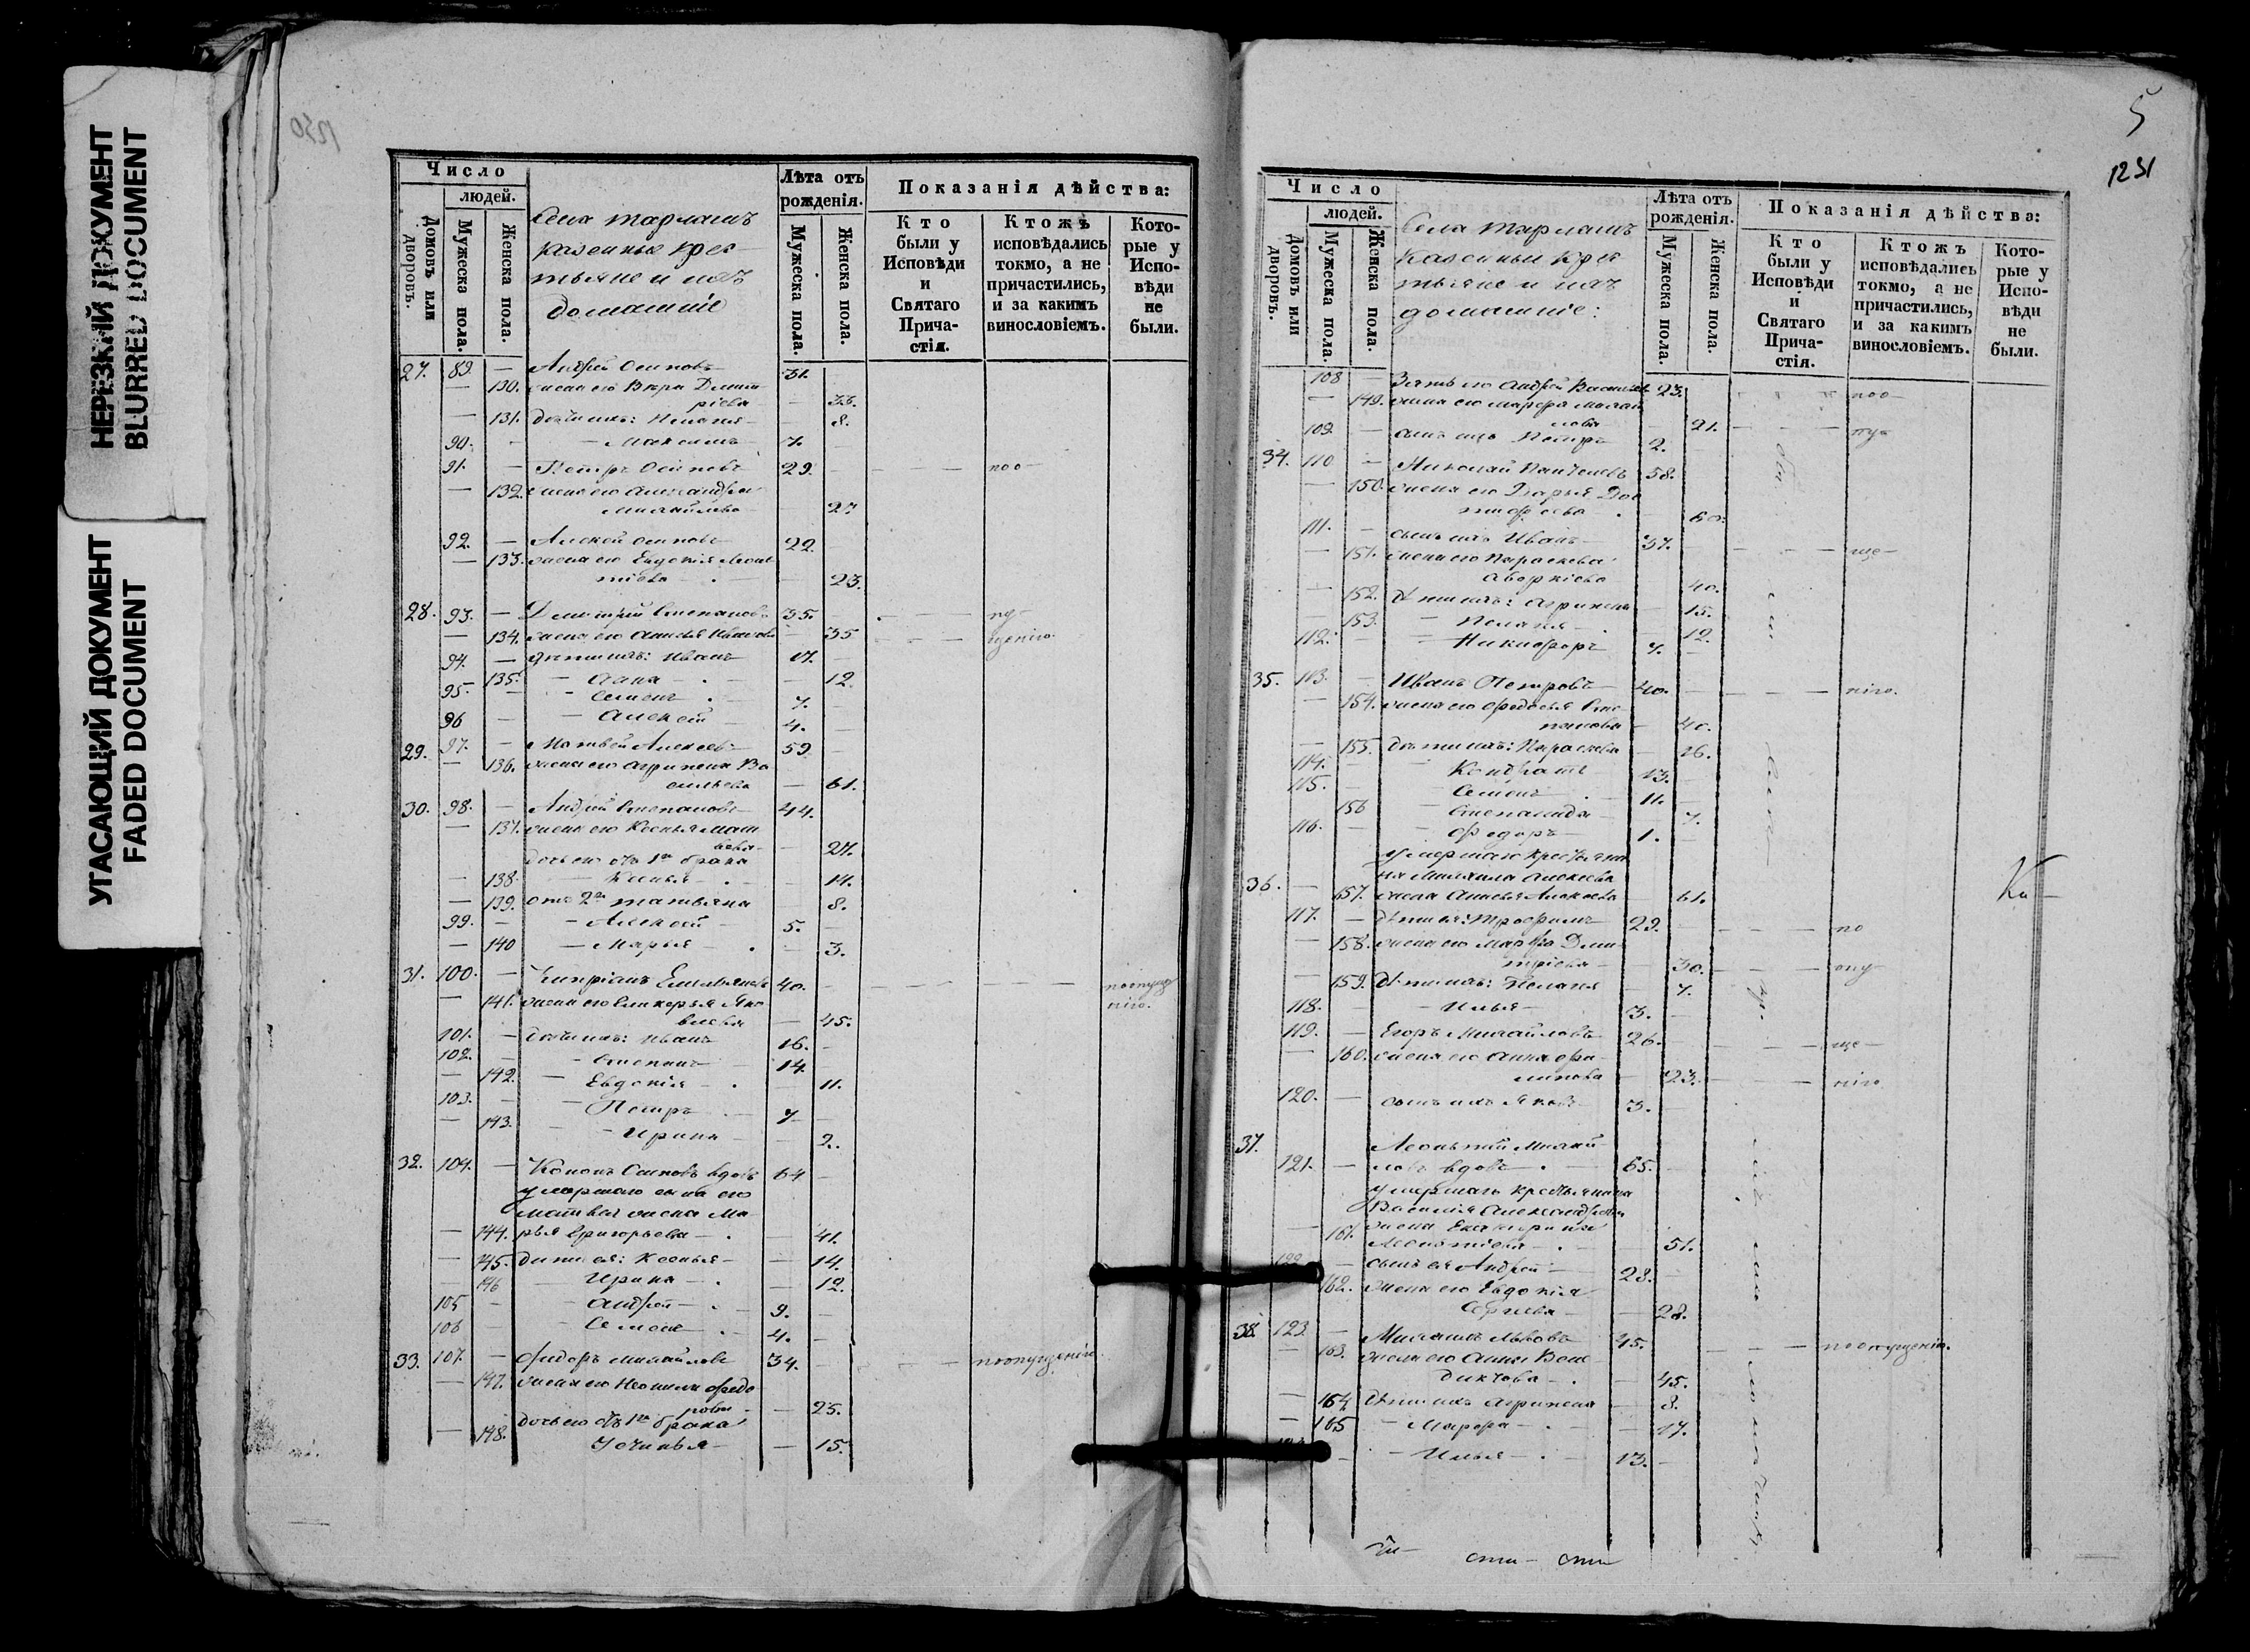 НЕРЕЗКИЙ ДОКУМЕНТ
BLURRED DOCUMENT
УГАСАЮЩИЙ ДОКУМЕНТ
FADED DOCUMENT
1230
Число
людей.
Домовъ или дворовъ.
Мужеска пола.
Женска пола.
Села Тарлашъ
казенные крес-
тьяне и ихъ
домашніе
Лѣта отъ рожденія.
Мужеска пола.
Женска пола.
Показанія дѣйства:
Кто были у Исповѣди и Святаго Прича-стія.
Ктожъ исповѣдались токмо, а не причастились, и за какимъ винословіемъ.
Кото-рые у Испо-вѣди не были.
27. 89. — Андрей Осиповъ 31.
— 130. жена его Вѣра Димит
ріева — 33.
— 131. дѣти ихъ: Пелагея — 8.
90. — Максимъ 7.
91. — Петръ Осиповъ 29. — — — поо
— 132. жена его Александра
Михайлова — 27
92. — Алексей Осиповъ 22.
— 133. жена его Евдокія Леонт
тіева — 23.
28. 93. — Димитрій Степановъ 35. — — пу
— 134. жена его Анисья Иванова — 35 — — — щенію.
94. — дѣти ихъ: Иванъ 17.
135. — Анна — 12.
95. — Семенъ 7.
96 — Алексей 4.
29. 97. — Матвей Алексеевъ 59.
— 136. жена его Агрипена Ва
сильева — 61.
30. 98. — Андрей Степановъ 44.
— 137. жена его Ксенья Мат
вева — 27.
дочь его отъ 1го брака
— 138. — Ксенья — 14.
— 139. отъ 2го Татьяна — 8.
99. — Алексей 5.
— 140 — Марья — 3.
31. 100. — Кипріанъ Емельяновъ 40. — — — — — поопуще
— 141. жена его Гликерья Яко нію.
влева — 45.
101. — дѣти ихъ: Иванъ 16.
102. — Степанъ 14.
— 142. — Евдокія — 11.
103. — Петръ 7
— 143. — Ирина — 2.
32. 104. — Кононъ Осиповъ вдовъ 64
умершаго сына его
Матвея жена Ма-
— 144. рья Григорьева — 41.
— 145. дѣти ея: Ксенья — 14.
— 146 — Ирина — 12.
105 — Андрей — 9.
106 — Семенъ 4.
33. 107. — Федоръ Михайловъ 34. — — — поопущенію.
— 147. жена его Неонила Федо
рова — 25.
дочь его отъ 1го брака
— 148. Устинья — 15.
5
1231
Число
людей.
Домовъ или дворовъ.
Мужеска пола.
Женска пола.
Села Тарлашъ
Казенные Крес
тьяне и ихъ
домашніе:
Лѣта отъ рожденія.
Мужеска пола.
Женска пола.
Показанія дѣйства:
Кто были у Исповѣди и Святаго Прича-стія.
Ктожъ исповѣдались токмо, а не причастились, и за какимъ винословіемъ.
Кото-рые у Испо-вѣди не были.
108 — Зять его Андрей Васильевъ 23. — — — поо
— 149. жена его Марфа Михай
лова — 21. — — — пу
109. — сынъ ихъ Петръ 2.
34. 110 — Николай 58.
— 150. жена его Дарья До
рофеева — 60.
111. — сынъ ихъ Иванъ 37. — — — ще
— 151. жена его Параскева
40.
— 152. дѣти ихъ: Агрипена — 15.
153. — Пелагея — 12.
112. — Никифоръ 7.
35. 113. — Иванъ Петровъ 40. — — — нію.
— 154. жена его Федосья Сте
панова — 40.
— 155. дѣти ихъ: Параскева — 16.
114. — Кондратъ 13.
115. — Семенъ 11.
156 — Степанида 7.
116. — Федоръ 1.
умершаго крестьяни
на Михаила Алексеева
36. — 157. жена Анисья Алексеева — 61.
117. — дѣти ея: Трофимъ 29. — — — по
— 158. жена его Марфа Дми
тріева — 30. — — — опу
— 159. дѣти ихъ: Пелагея — 7.
118. — Илья 3.
119. — Егоръ Михайловъ 26. — — — ще
— 160. жена его Анна
23. — — — нію
120. — сынъ ихъ Яковъ 3.
37. Леонтій Михай
121. — ловъ вдовъ 65.
умершаго крестьянина
Василія Александрова
— 161. жена Екатерина
Леонтіева — 51.
122 — сынъ ея Андрей 28.
162. жена его Евдокія
Сергиева — 28.
38. 123. — Михаилъ Львовъ 45. — — — поопущенію.
— 163. жена его Анна Вене
диктова — 45.
— 164 дѣти ихъ Агрипена — 8.
— 165 — Марфа — 17.
— Илья — 13.
Ка